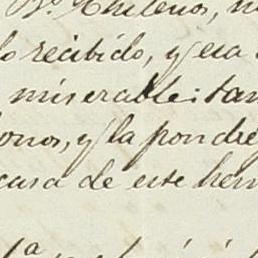 Chilenos,
lo recibido, y era
miserable: tan
onos, y la pondre
casa de este hem